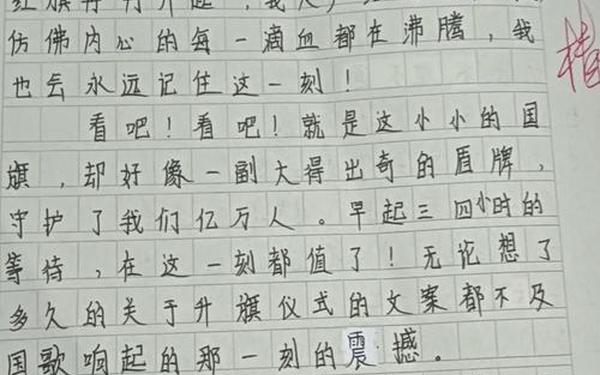 仿佛内心的每一滴血都在沸腾，我
也会永远记住这一刻！
看吧！看吧！就是这小小的国
旗，却好像一副大得出奇的盾牌，
守护了我们亿万人。早起三四小时的
等待，在这一刻都值了！无论想了
多久的关于升旗仪式的文案都不及
国歌响起的那一刻的震撼。